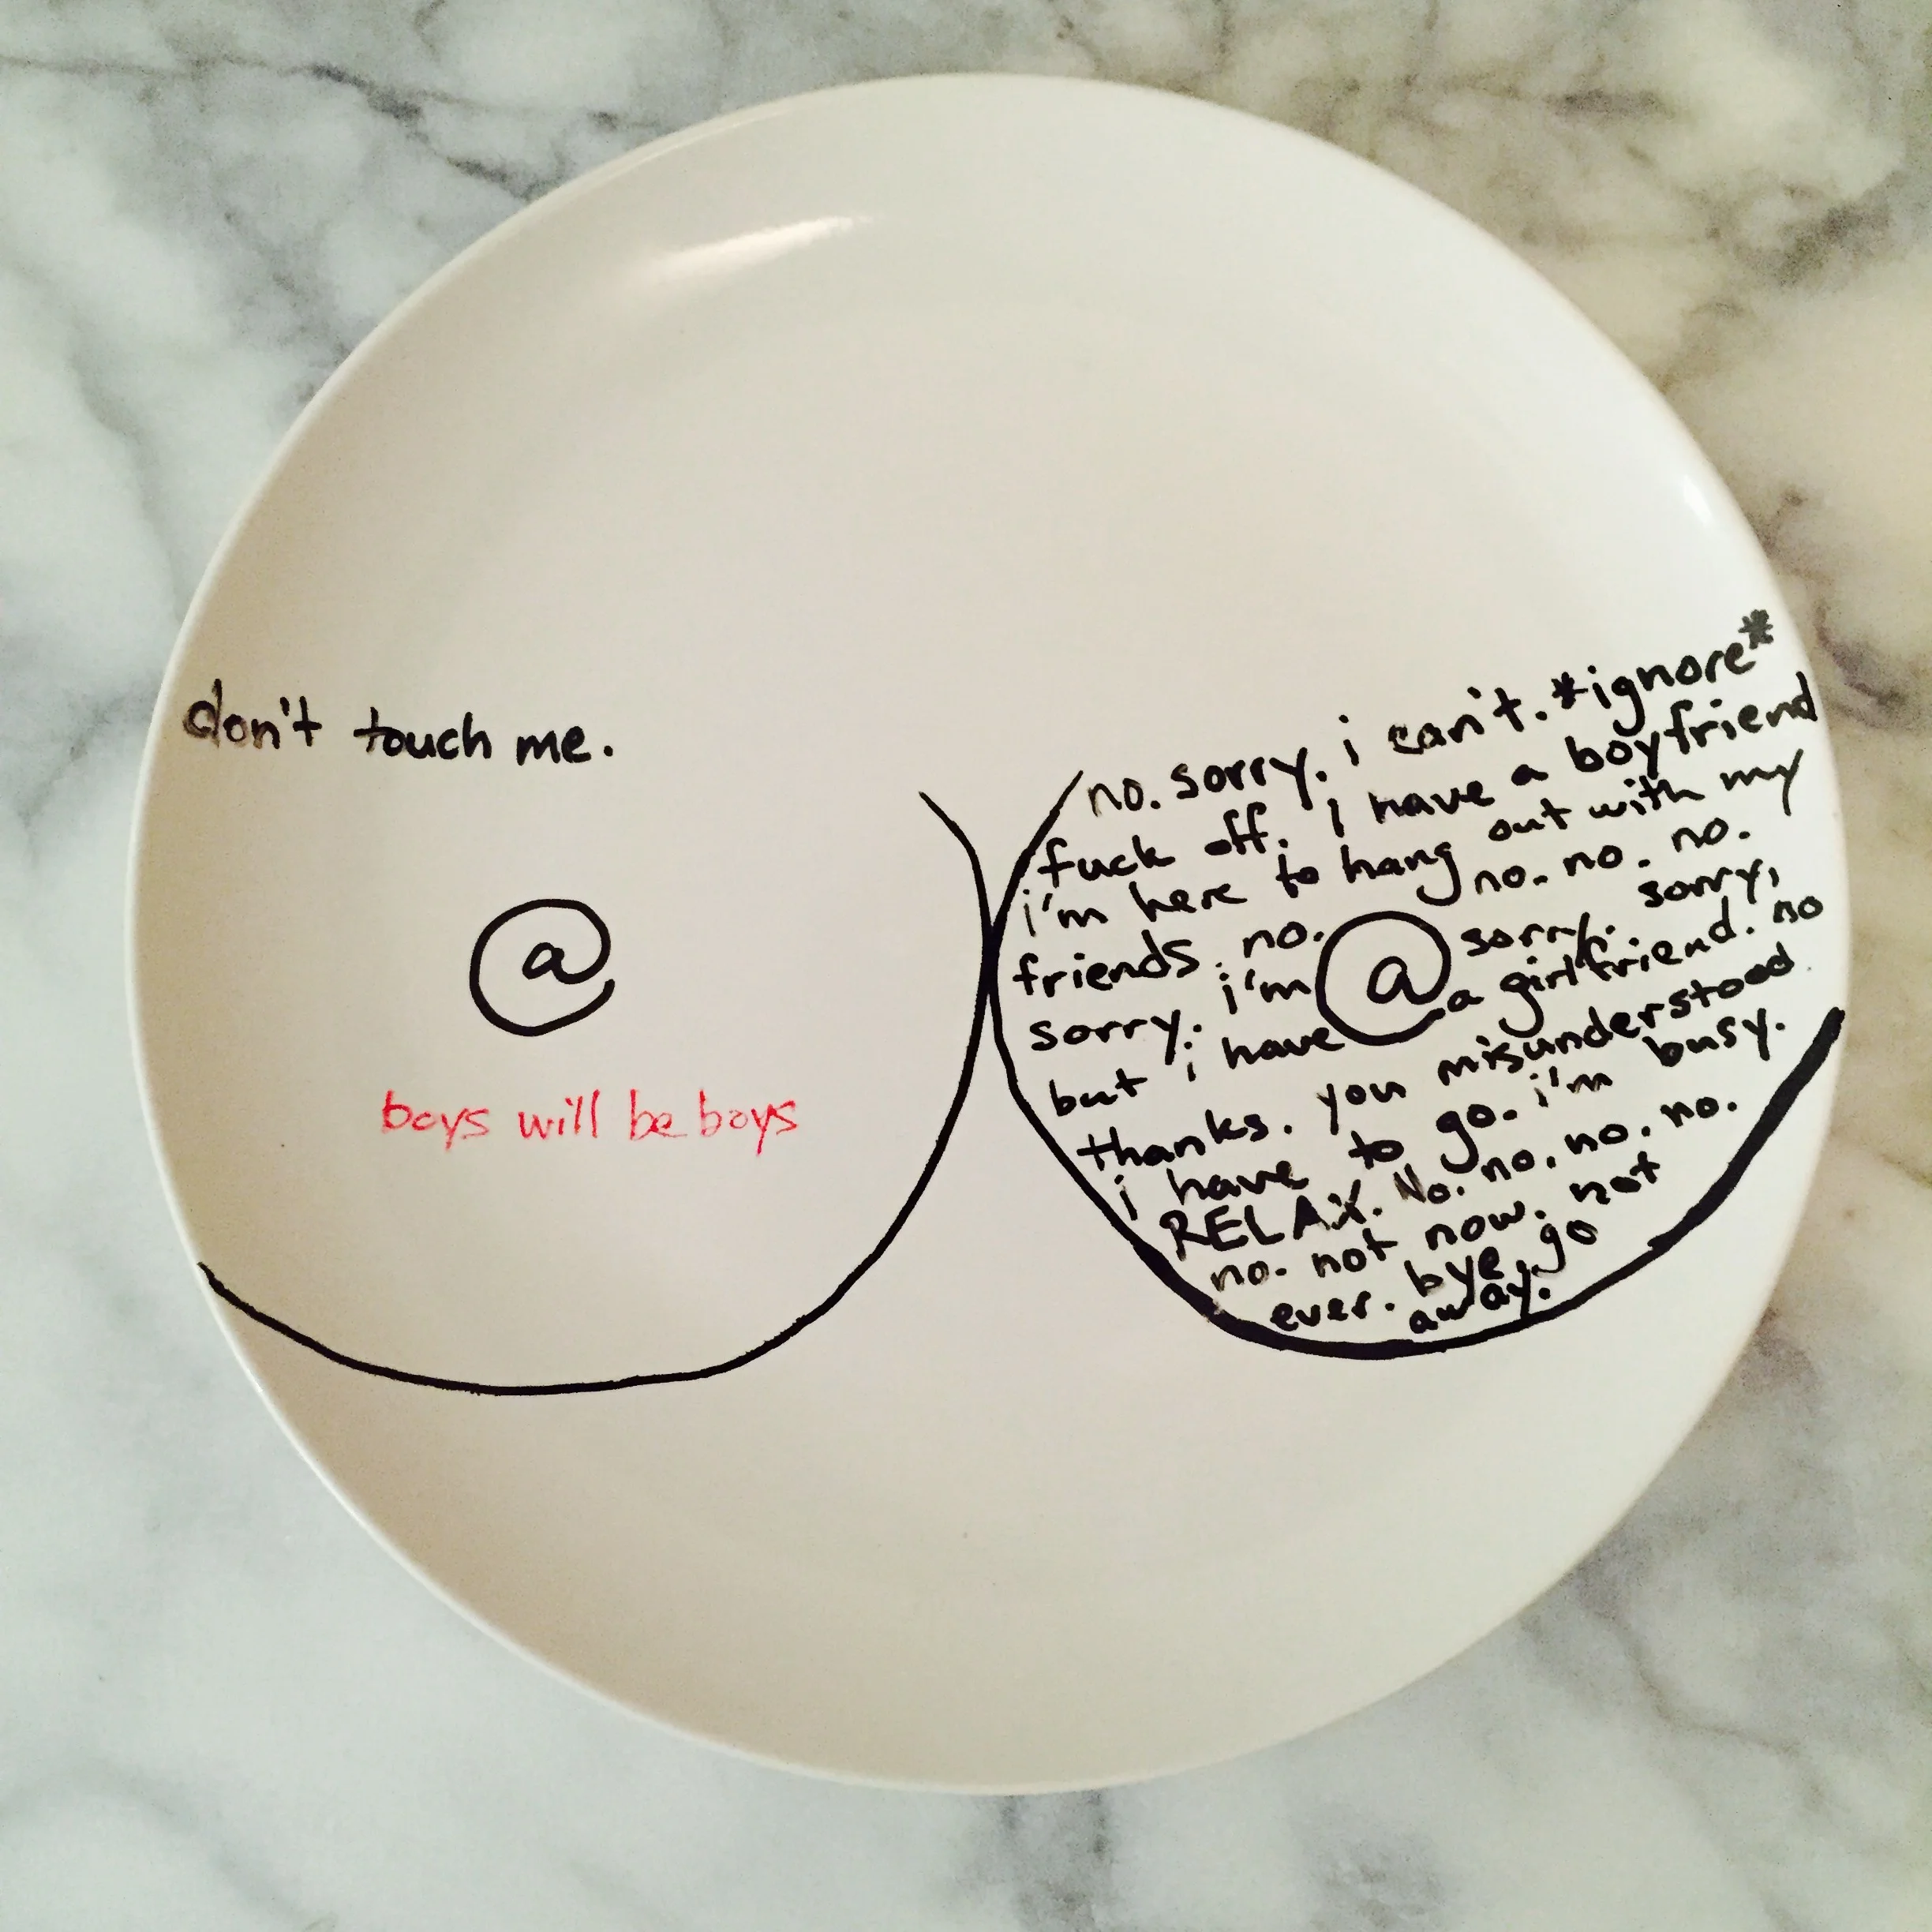 don't touch me.
@
boys will be boys
no. sorry. i can't. *ignore*
fuck off. i have a boyfriend
i'm here to hang out with my
friends. no. no. no. no.
sorry. i'm @ sorry. sorry,
but i have a girlfriend. no
thanks. you misunderstood.
i have to go. i'm busy.
RELAX. No. no. no. no.
no. not now. not
ever. bye. go
away.